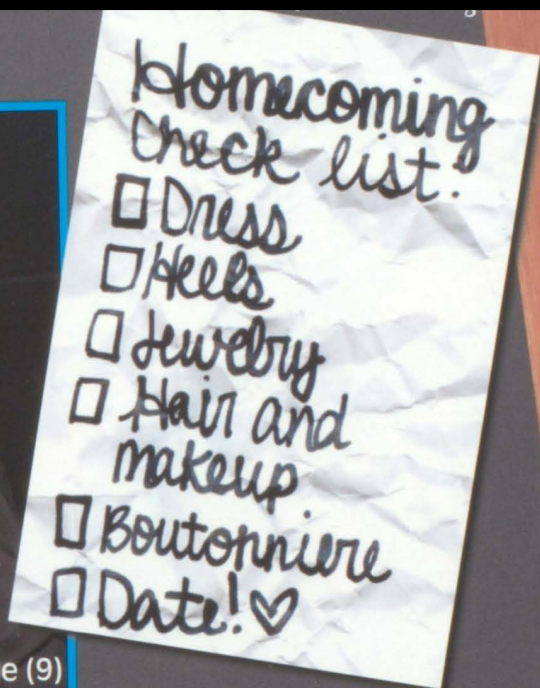 Homecoming
Check list:
Dress
Heels
Jewelry
Hair and
makeup
Boutonniere
Date!♡
e (9)